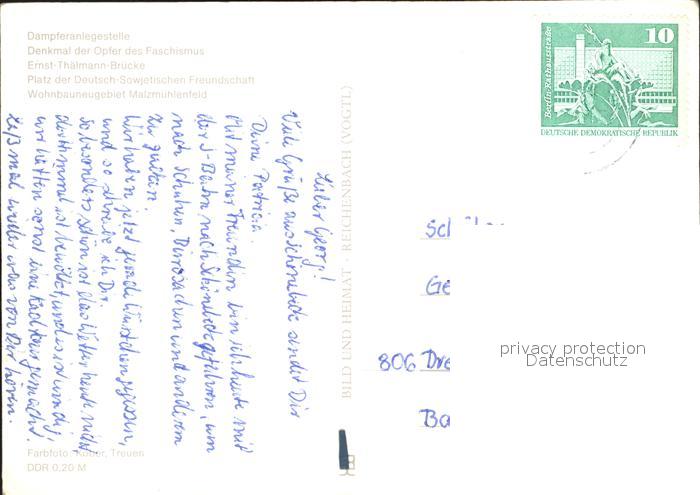 Dampferanlegestelle
Denkmal der Opfer des Faschismus
Ernst-Thälmann-Brücke
Platz der Deutsch-Sowjetischen Freundschaft
Wohnbauneugebiet Malzmühlenfeld
Lieber Georg!
Viele Grüße aus Schönebeck sendet Dir
Deine Patricia.
Mit meiner Freundin bin ich heute mit
der S-Bahn nach Schönebeck gefahren, um
nach Schuhen, Dirnosachen und anderem
zu gucken.
Wir haben jetzt gerade Würstchen gegessen,
und so schreibe ich Dir.
So besonders schön ist das Wetter heute nicht
der Himmel ist bewölkt, und es ist windig
wir hätten sonst eine Radtour gemacht.
Laß mal wieder was von Dir hören.
Farbfoto: Kober, Treuen
DDR 0,20 M
BILD UND HEIMAT · REICHENBACH (VOGTL)
Berlin-Rathausstraße
10
DEUTSCHE DEMOKRATISCHE REPUBLIK
Sch
Ge
806 Dre
Ba
privacy protection
Datenschutz